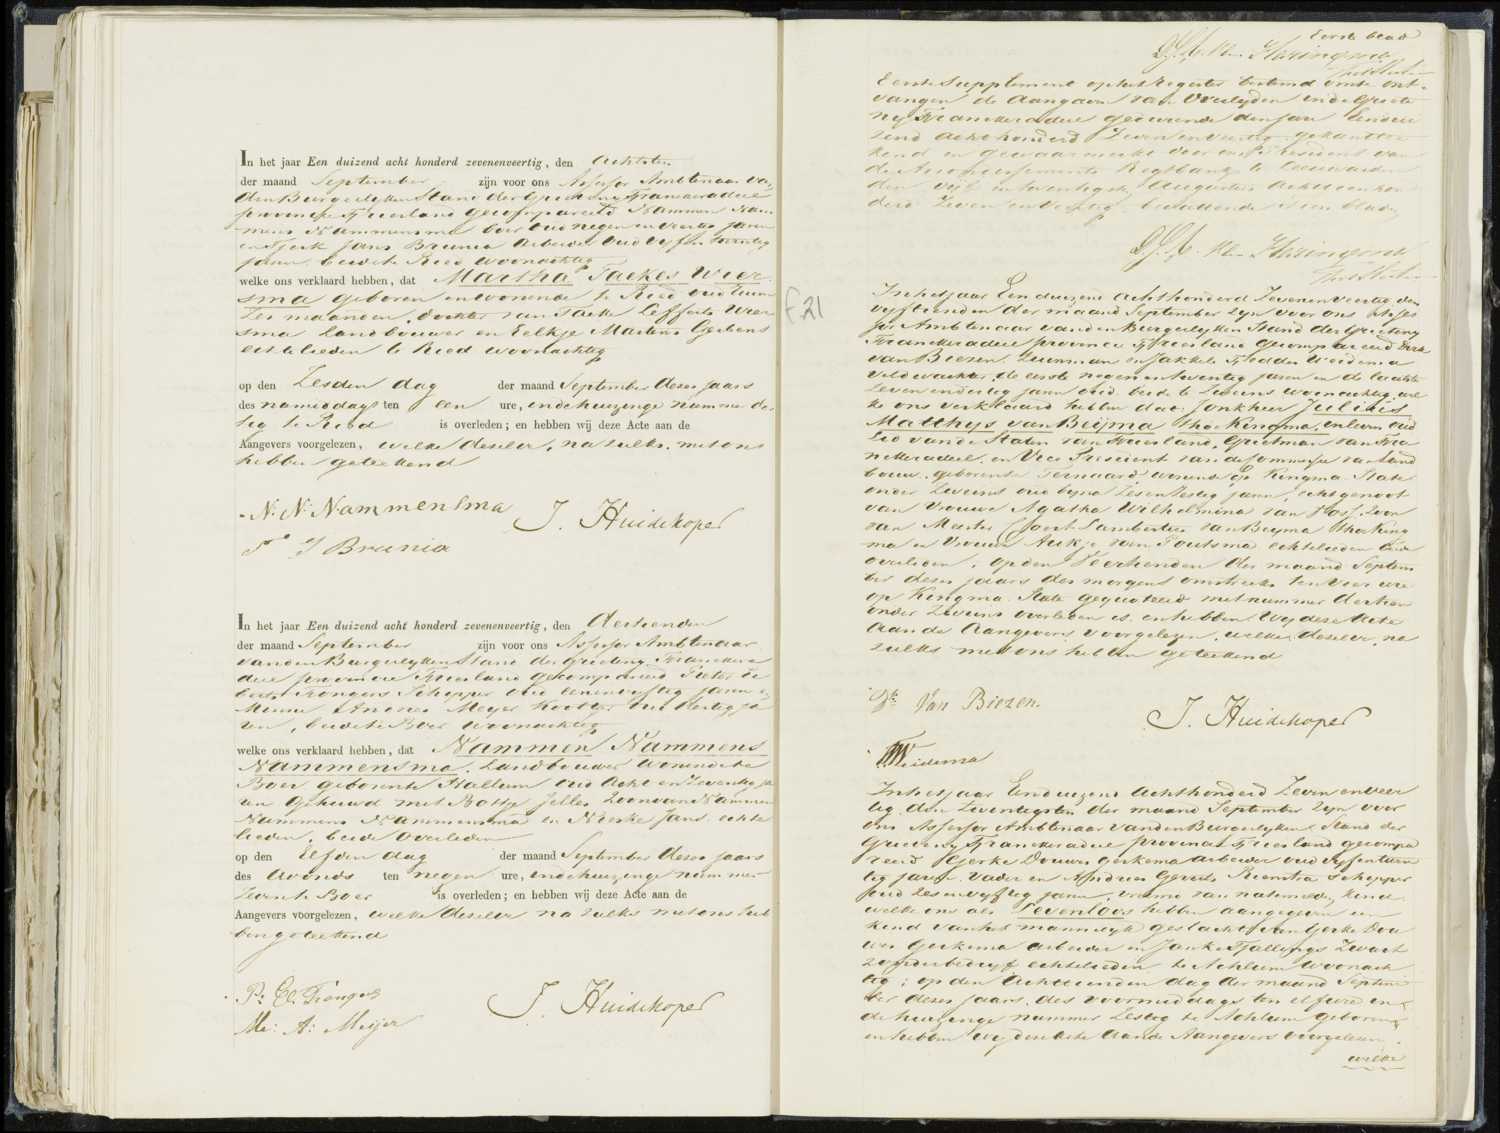 In het jaar Een duizend acht honderd zevenenveertig, den Achtsten
der maand September zijn voor ons Assessor Ambtenaar van
den Burgerlyken Stand der Grieteny Franekeradeel
provincie Friesland gecompareerd Nammen Nam
mens Nammensma boer oud negen en veertig jaren
en Tjerk Jans Brunia arbeider oud vyf en twintig
jaren, beide te Ried woonachtig
welke ons verklaard hebben, dat Martha Taekes Wier
sma geboren en wonende te Ried oud
zes maanden, dochter van Taeke Lefferts Wier
sma landbouwer en Eelkje Martens Gerbens
echtelieden te Ried woonachtig
op den Zesden dag der maand September dezes jaars
des namiddags ten een ure, in de huizinge nummer
te Ried is overleden; en hebben wij deze Acte aan de
Aangevers voorgelezen, welke dezelve, na zulks, met ons
hebben geteekend
N. N. Nammensma J. Huidekoper
T J Brunia
In het jaar Een duizend acht honderd zevenenveertig, den dertienden
der maand September zijn voor ons Assessor Ambtenaar
van den Burgerlyken Stand der Grieteny Franekera
deel provincie Friesland gecompareerd Pieter
Schepper oud eenenvyftig jaren en
Meinte Andries Meyer oud dertig ja
ren, beide te Boer woonachtig
welke ons verklaard hebben, dat Nammen Nammens
Nammensma, Landbouwer wonende te
Boer geboren te Hallum oud Acht en Zeventig ja
ren gehuwd met Bottje Jelles Zoon van Nammen
Nammens Nammensma en Nieske Jans echte
lieden, beide overleden
op den Elfden dag der maand September dezes jaars
des avonds ten negen ure, in de huizinge nummer
Zeven te Boer is overleden; en hebben wij deze Acte aan de
Aangevers voorgelezen, welke dezelve na zulks met ons heb
ben geteekend
J. Huidekoper
Me: A: Meijer
F21
Eerste blad
Eerste Supplement op het Register bestemd om te ont-
vangen de aangaven van Overlyden in de Griete
ny Franekeradeel gedurende den jare Eenduizend
achthonderd Zeven en veertig, gekanttee
kend en gewaarmerkt door ons President van
de Arrondissements Regtbank te Leeuwarden
den vyf en twintigsten Augustus achttienhon
derd Zeven en veertig, bevattende een blad
In het jaar Eenduizend Achthonderd Zevenenveertig, den
vyftienden der maand September zyn voor ons Asses
sor Ambtenaar van den Burgerlyken Stand der Grieteny
Franekeradeel provincie Friesland gecompareerd Dirk
van Biezen, Tuinman en Jakkele Fedde Weidema
Veldwachter, de eerste negen en twintig jaren en de laatste
Zeven en dertig jaren oud, beide te Zweins woonachtig, wel
ke ons verklaard hebben dat: Jonkheer Julius
Matthys van Beyma thoe Kingma, in leven oud
Lid van de Staten van Friesland, Grietman van Fra
nekeradeel, en Vice President van de Commissie van Land
bouw, geboren te Ternaard, wonende op Kingma State
onder Zweins oud byna Zes en Zestig jaren, echtgenoot
van Vrouwe Agatha Wilhelmina van Hoss, Zoon
van Master Coert Lambertus van Beyma thoe King
ma en Vrouwe Aukje van Goutsma echtelieden beide
overleden, op den Veertienden der maand Septem
ber dezes jaars des morgens omstreeks ten Vier ure
op Kingma State gequoteerd met nummer dertien
onder Zweins overleden is, en hebben Wy deze Acte
aan de Aangevers voorgelezen, welke dezelve, na
zulks met ons hebben geteekend
Dk Van Biezen.
J. Huidekoper
Weidema
In het jaar Eenduizend Achthonderd Zeven en veer
tig, den Twintigsten der maand September zyn voor
ons Assessor Ambtenaar van den Burgerlyken Stand der
Grieteny Franekeradeel provincie Friesland gecompa
reerd Gerke Douwes Gerkema arbeider oud vyf en veer
tig jaren Vader en Andries Gerrits Rienstra schipper
oud Zes en vyftig jaren, vriend van natemelden kind
welke ons als Levenloos hebben aangegeven een
kind van het mannelyk geslacht van Gerke Dou
wes Gerkema arbeider en Janke Tjallings Zwart
zonder bedryf echtelieden te Achlum Woonach
tig; op den Achttienden dag der maand Septem
ber dezes jaars, des voormiddags ten elf ure in
de huizinge nummer Zestig te Achlum geboren,
en hebben Wy deze Acte aan de Aangevers voorgelezen,
welke